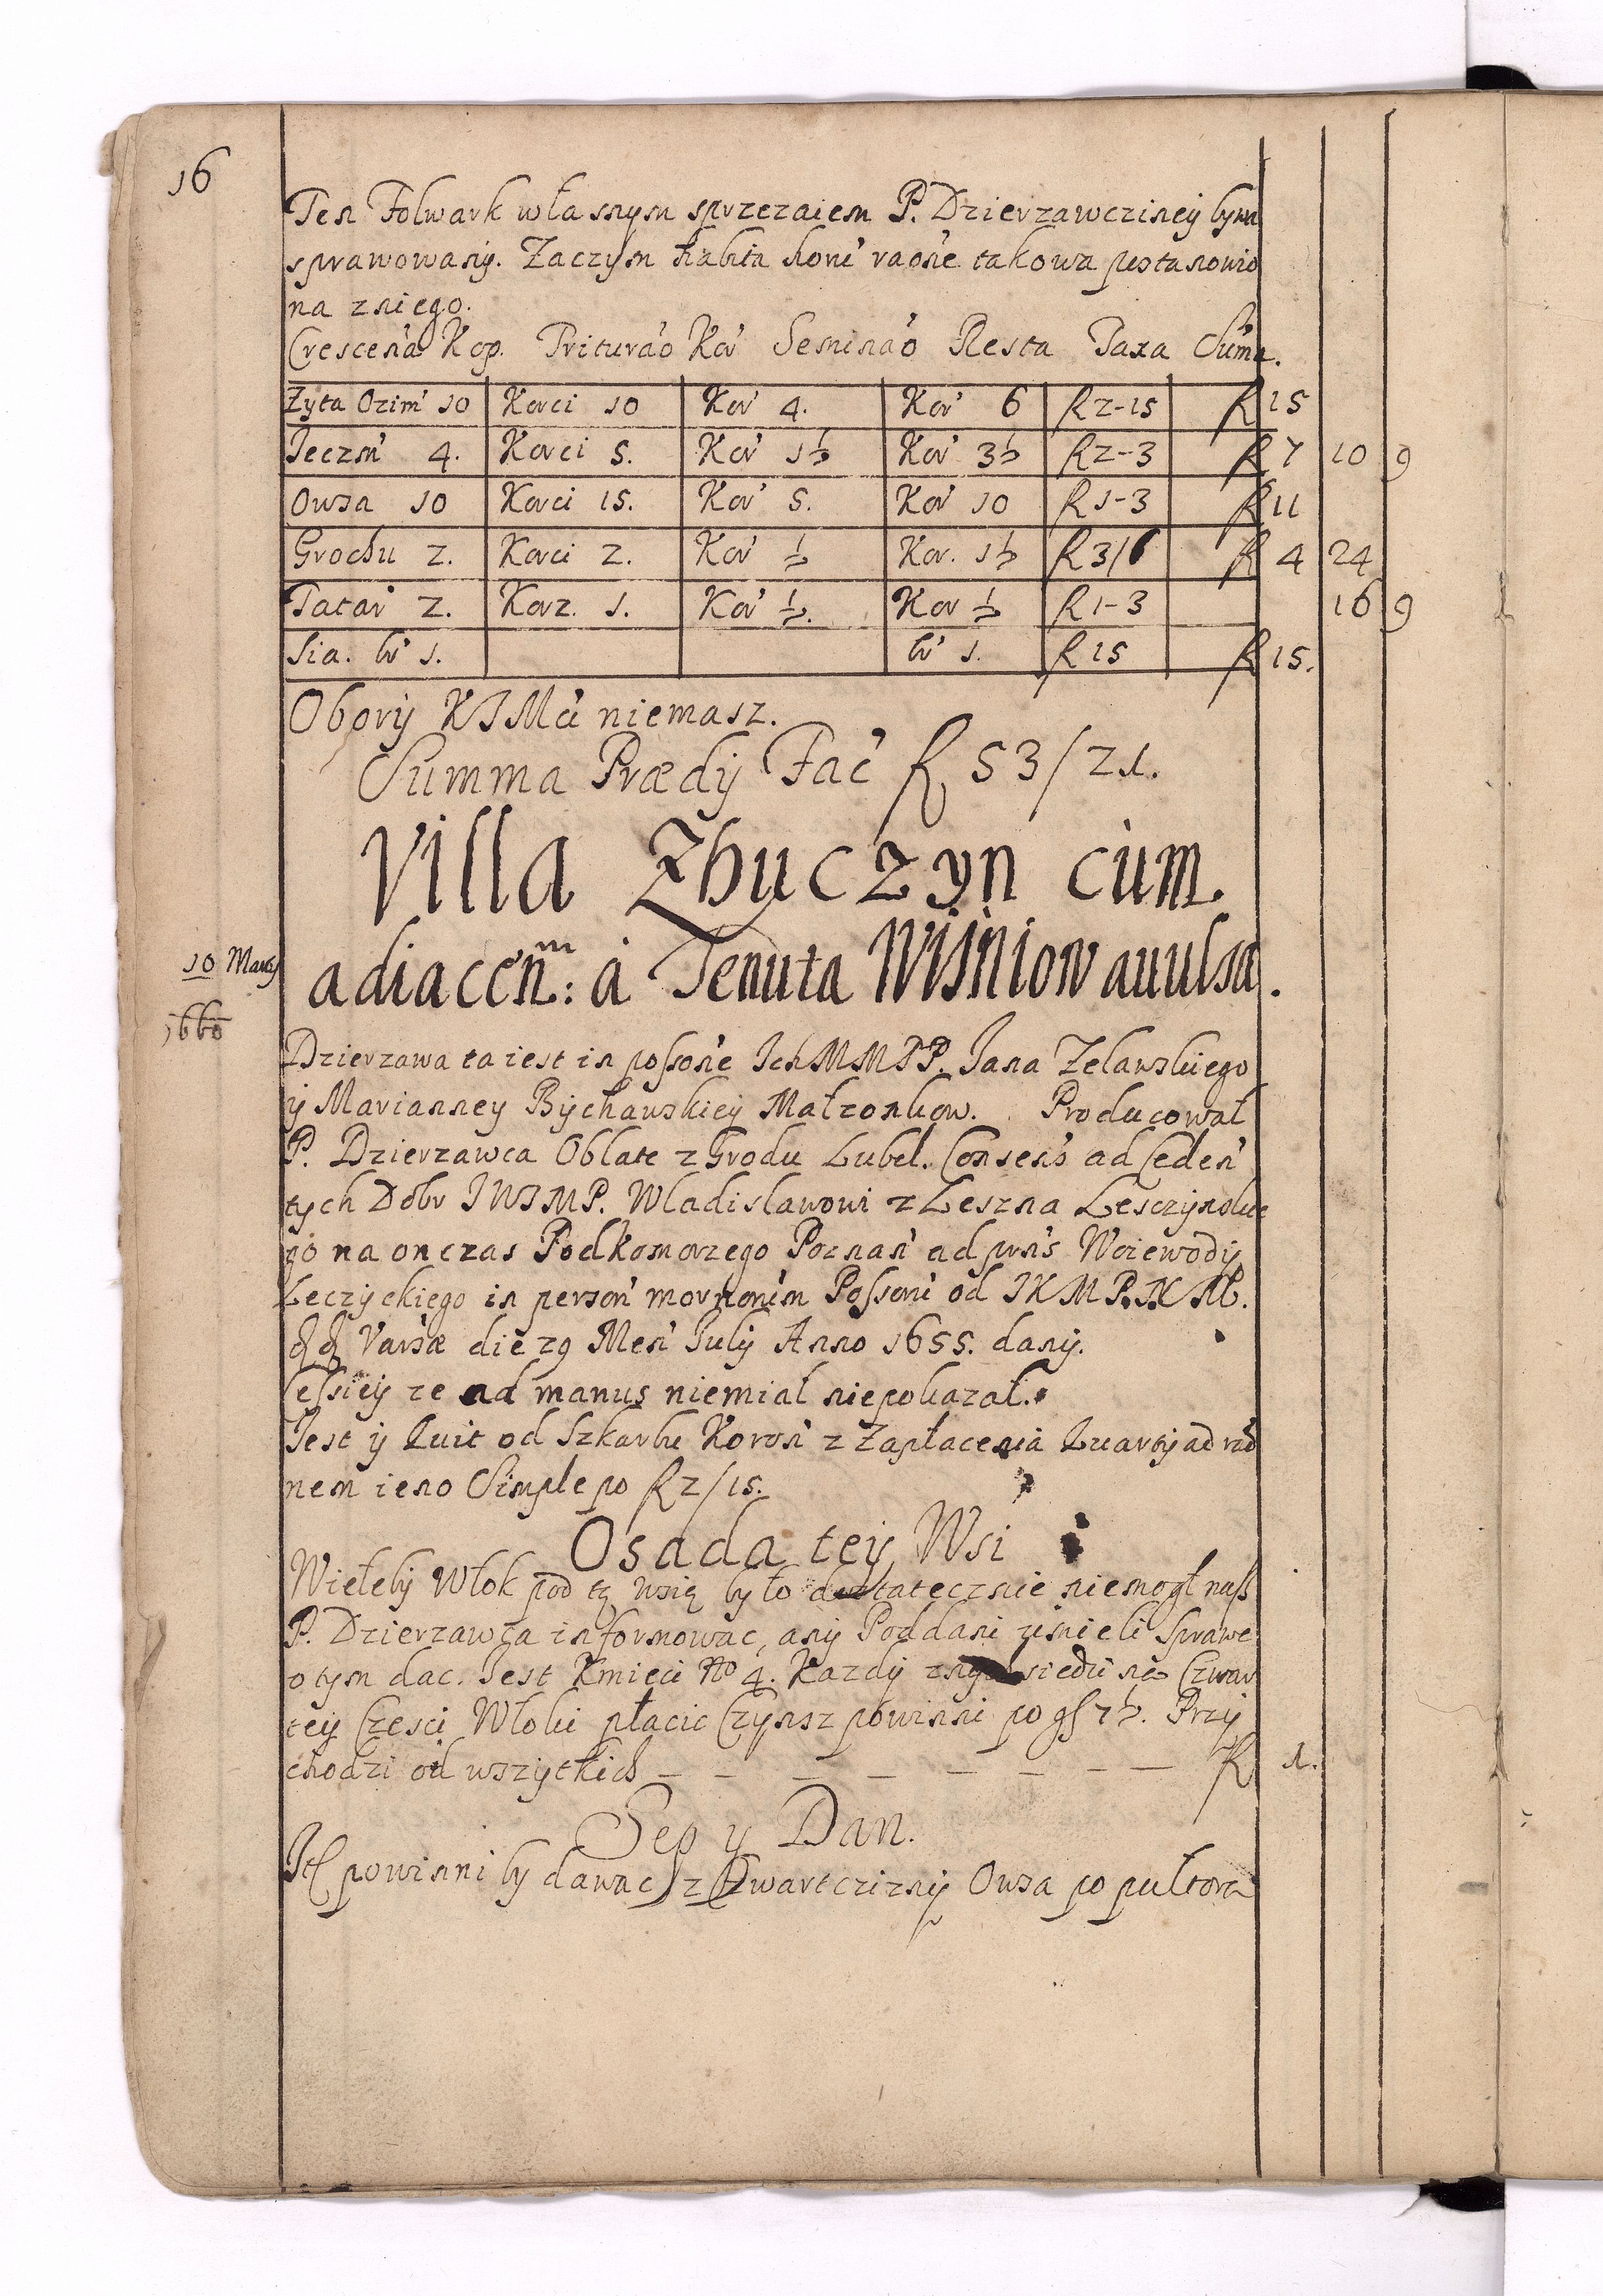 16
Ten Folwark własnym sprzezaiem P. Dzierzawcziney bywa
sprawowany. Zaczym habita honi raone takowa postanowio
na zniego.
Crescena Kop. Triturao Kor Seminao Resta Taxa Suma.
Zyta Ozim 10 Korci 10 Kor 4. Kor 6 f 2-15 f 15
Jeczm 4. Korci 5. Kor 1½ Kor 3½ f 2-3 f 7 10 9
Owsa 10 Korci 15. Kor 5. Kor 10 f 1-3 f 11
Grochu 2. Korci 2. Kor ½ Kor. 1½ f 3/6 f 4 24
Tatar 2. Korz. 1. Kor ½. Kor ½ f 1-3 16 9
Sia. br 1. br 1. f 15 f 15.
Obory KJMci niemasz.
Summa Prædij Fac f 53/21.
Villa Zbuczyn cum
adiacen: à Tenuta Wiśniow auulsa.
10 Marty
1660
Dzierzawa ta iest in possone IchMMPP. Jana Zelawskiego
y Marianney Bychawskiey Małzonkow. Producował
P. Dzierzawca Oblate z Grodu Lubel. Consens ad Ceden
tych Dobr JWJMP. Wladislawowi z Leszna Lesczynskie
go na onczas Podkomorzego Poznan ad prns Woiewody
Leczyckiego in person mormonim Possoni od JKMP.N.M.
Varsæ die 29 Men July Anno 1655. dany.
Cessiey ze ad manus niemial niepokazał.
Jest y Quit od Szkarbu Koron z Zapłacenia Quarty ad rao
nem ieno Simple po f 2/15.
Osada tey Wsi
Wieleby Włok pod tą wsią było dostatecznie niemogł nass
P. Dzierzawca informowac, any Poddani umieli Sprawe
o tym dac. Jest Kmieci No 4. Kazdy znych siedzi na Czwar
tey Czesci Włoki płacic Czynsz powinni po gs 7½. Przy
chodzi od wszytkich — — — — — — — — f 1.
Sep y Dan.
Itl powinni by dawac z Czwartczizny Owsa po pultora